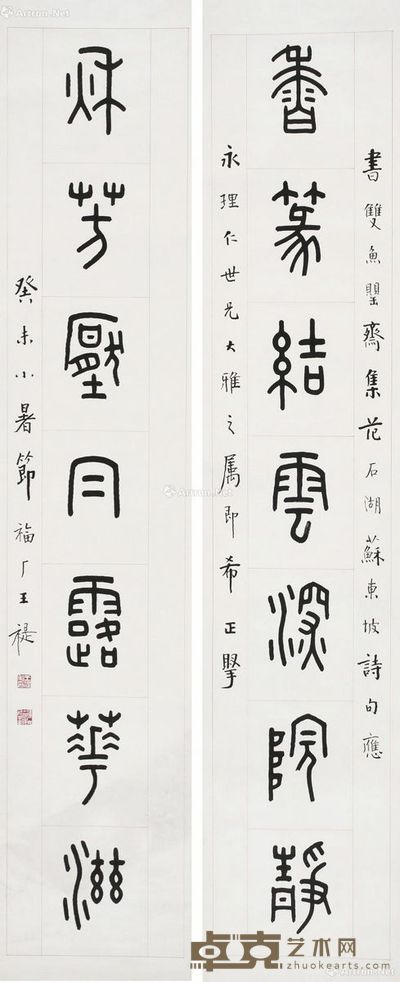 書雙魚罌齋集范石湖蘇東坡詩句應
香篆結雲深院靜
永理仁世兄大雅之属即希正掔
秋芳壓冃露華滋
癸未小暑節福厂王禔
卓克艺术网
zhuokearts.com
Artron.Net